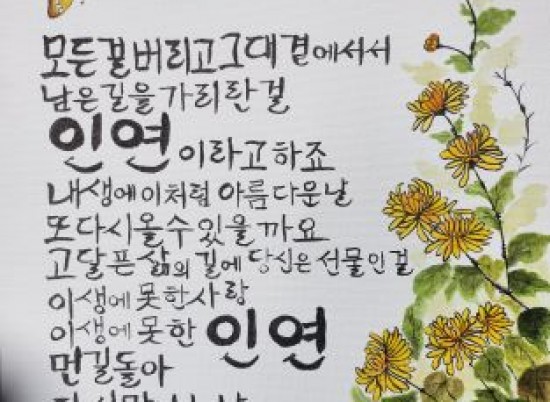 모든걸버리고그대곁에서서
남은길을가리란걸
인연이라고하죠
내생에이처럼아름다운날
또다시올수있을까요
고달픈삶의길에당신은선물인걸
이생에못한사랑
이생에못한인연
먼길돌아